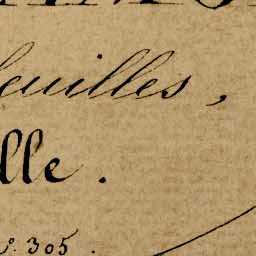 euilles,
lle.
º. 305.